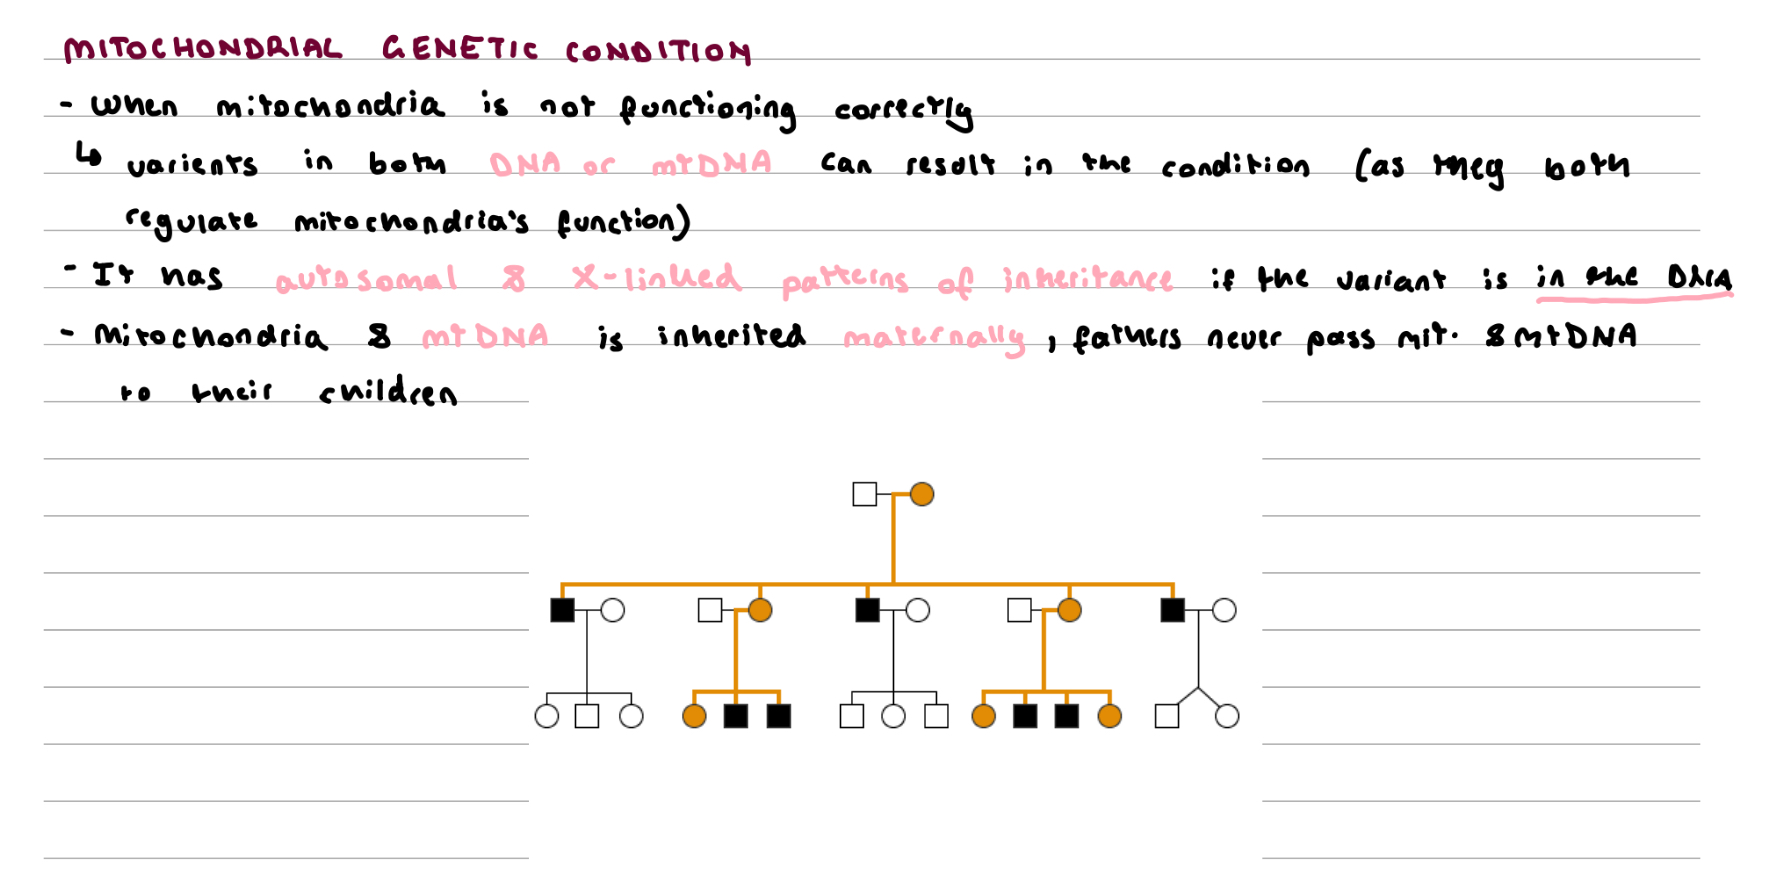 MITOCHONDRIAL GENETIC CONDITION
- When mitochondria is not functioning correctly
↳ varients in both DNA or mtDNA can result in the condition (as they both
regulate mitochondria's function)
- It has autosomal & X-linked patterns of inheritance if the variant is in the DNA
- Mitochondria & mtDNA is inherited maternally, fathers never pass mit. & mtDNA
to their children